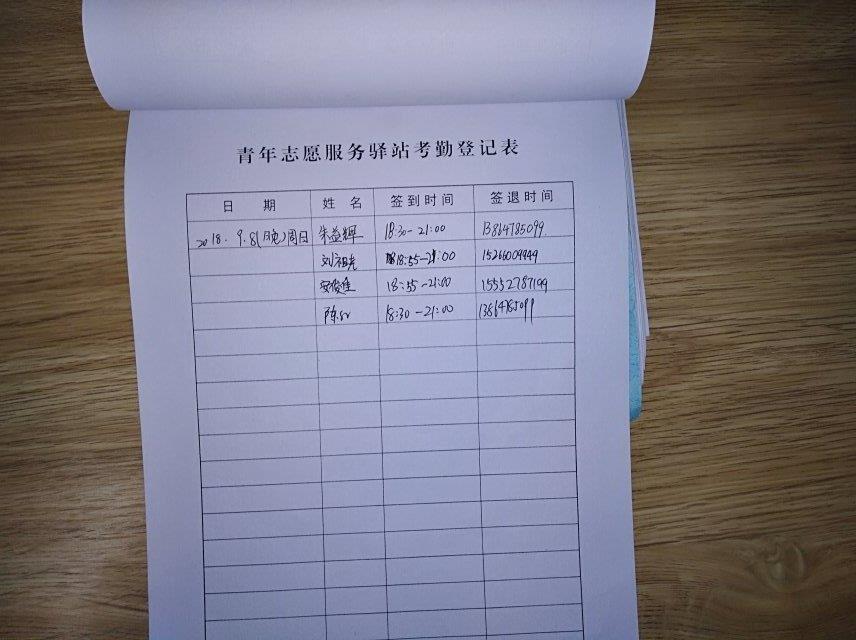 青年志愿服务驿站考勤登记表
日 期 姓 名 签到时间 签退时间
2018. 9.8(晚)周日 朱益辉 18:30-21:00 13864785099
刘祖光 18:55-21:00 15266009949
安俊佳 18:55-21:00 15552787199
18:30-21:00 13864785099